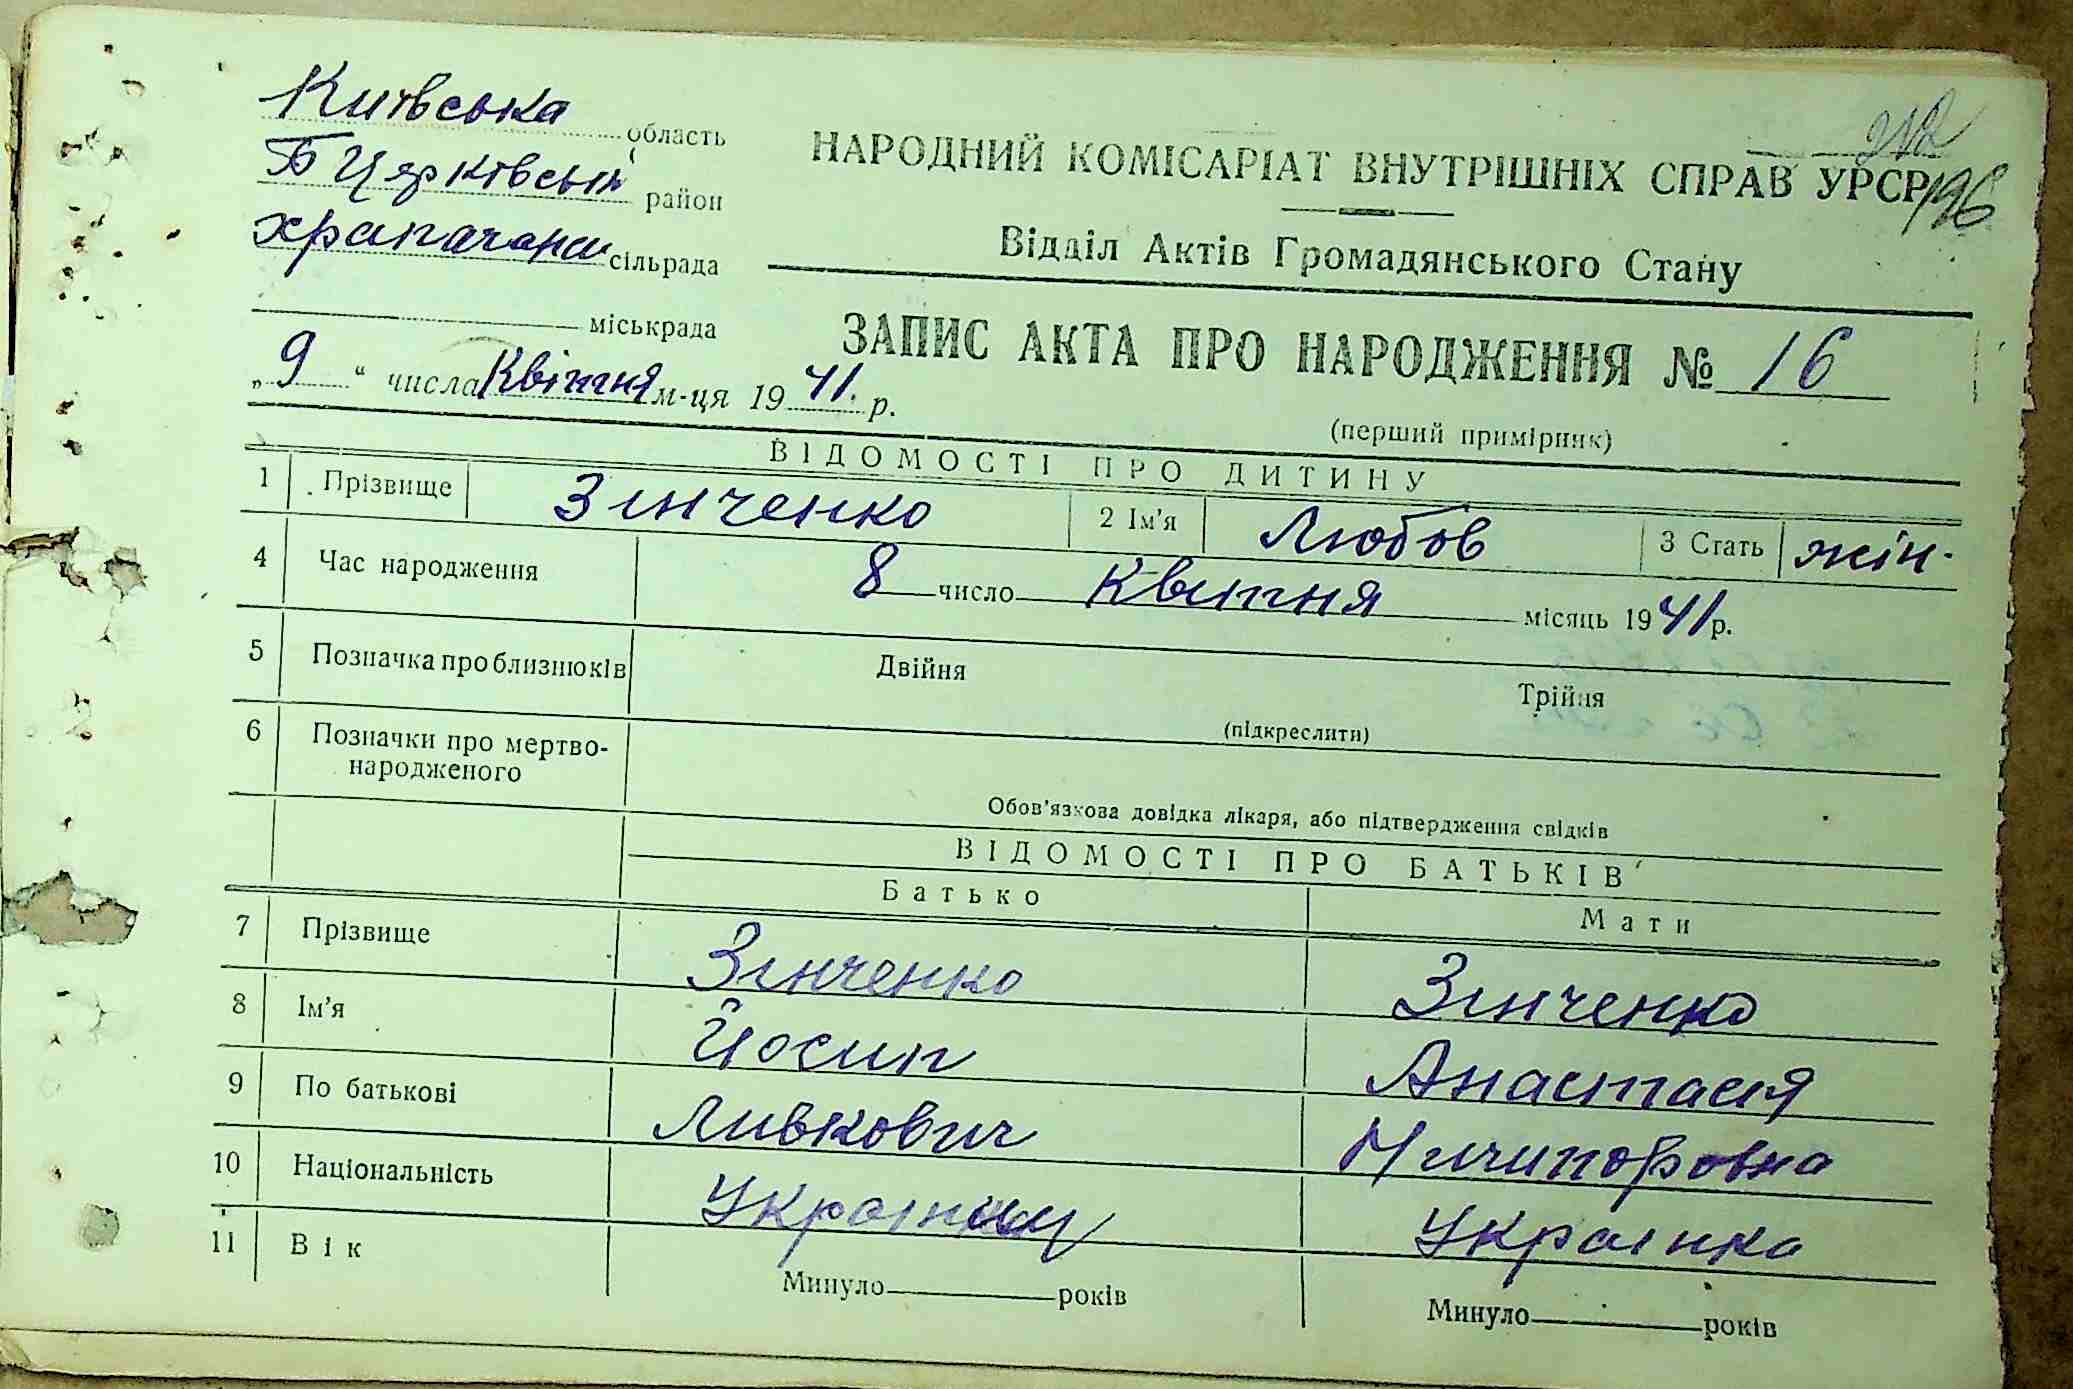 Київська область
Б Церківський район
Храпачан сільрада
міськрада
„9“ числа Квітня м-ця 1941. р.
212
196
НАРОДНИЙ КОМІСАРІАТ ВНУТРІШНІХ СПРАВ УРСР
Відділ Актів Громадянського Стану
ЗАПИС АКТА ПРО НАРОДЖЕННЯ № 16
(перший примірник)
ВІДОМОСТІ ПРО ДИТИНУ
1 Прізвище Зінченко 2 Ім'я Любов 3 Стать жін.
4 Час народження 8 число Квітня місяць 1941 р.
5 Позначка про близнюків Двійня Трійня
(підкреслити)
6 Позначки про мертво-
народженого
Обов'язкова довідка лікаря, або підтвердження свідків
ВІДОМОСТІ ПРО БАТЬКІВ
Батько Мати
7 Прізвище Зінченко Зінченко
8 Ім'я Йосип Анастасія
9 По батьковіЛивкович Ничипоровна
10 Національність Українец Українка
11 Вік Минуло років Минуло років